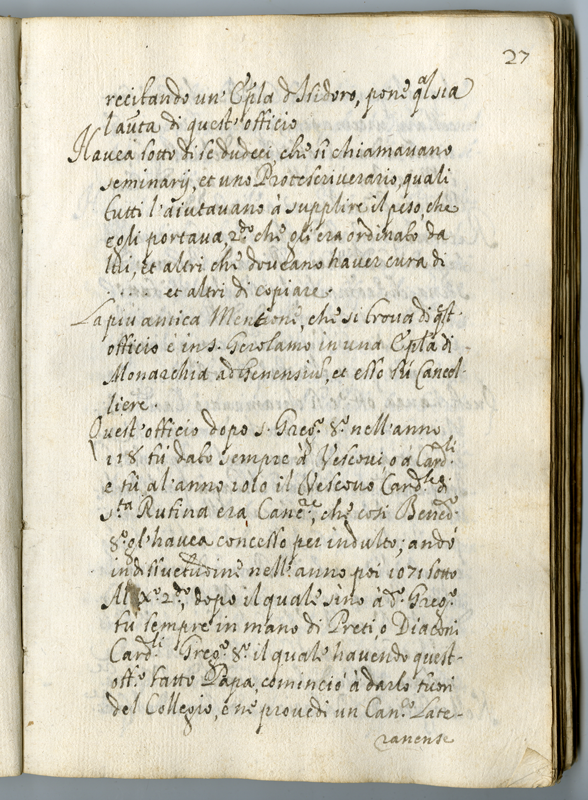 27
recitando un' Epĺa d'Isidoro, pone q̃l sia
l'auta di quest'officio
Havea sotto di se dudeci, che si chiamavano
seminarij, et uno Protoscriverario, quali
tutti l'aiutavano à supplire il peso, che
egli portava, 2.do che gli era ordinato da
lui, et altri che doveano haver cura di
et altri di copiare.
La più antica Mentione, che si trova di q̃st
officio è in s. Gerolamo in una Epĺa di
Monarchia ad , et esso fù Cancel-
liere.
Quest'officio dopo s. Greg.o 8.o nell'anno
118 fù dato sempre à Vescovi, o à Card.li
e fù al anno 1010 il Vescovo Card.le di
s.ta Rufina era Canc.re, che così Bened.o
8.o gl'havea concesso per indulto; andò
in dissuetudine nell'anno poi 1071 sotto
Aless.o 2.do, dopo il quale sino à d.o Greg.o
fù sempre in mano di Preti, o Diaconi
Card.li Greg.o 8.o il quale havendo quest-
off.o fatto Papa, cominciò à darlo fuori
del Collegio, e ne provedì un Can.co Late-
ranense